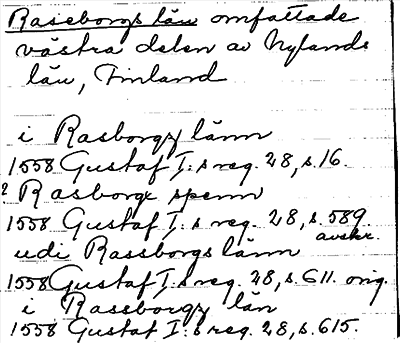 Raseborgs län omfattade
västra delen av Nylands
län, Finland
i Rasborgz länn
1558 Gustaf I:s reg. 28, s. 16.
? Rasborgz spenn
1558 Gustaf I:s reg. 28, s. 589.
avskr.
udi Rassborgs länn
1558 Gustaf I:s reg. 28, s. 611. orig.
i Rasseborgz län
1558 Gustaf I:s reg. 28, s. 615.